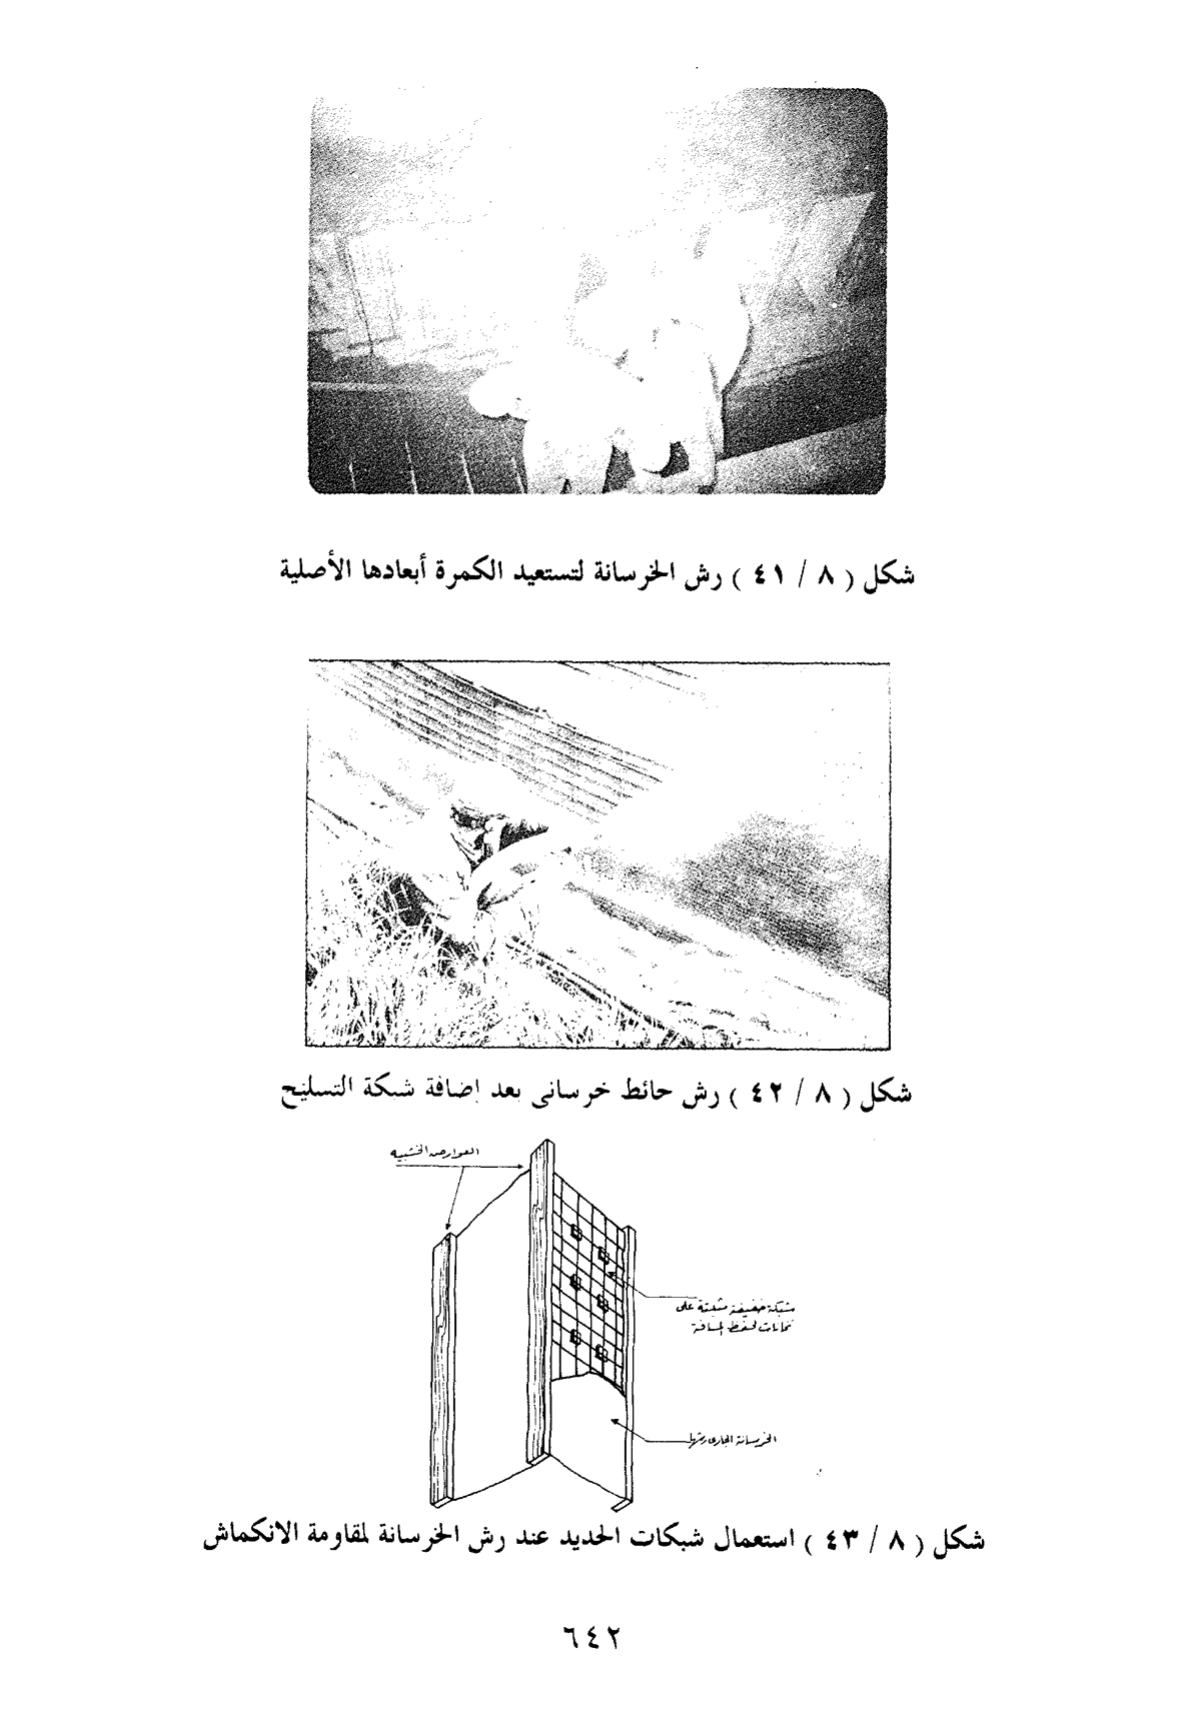 شكل ( ٨ / ٤١ ) رش الخرسانة لتستعيد الكمرة أبعادها الأصلية
شكل ( ٨ / ٤٢ ) رش حائط خرسانى بعد إضافة شبكة التسليح
العوارض الخشبية
شبكة خفيفة مثبتة على
تخانات لحفظ المسافة
الخرسانة الجارى رشها
شكل ( ٨ / ٤٣ ) استعمال شبكات الحديد عند رش الخرسانة لمقاومة الانكماش
٦٤٢